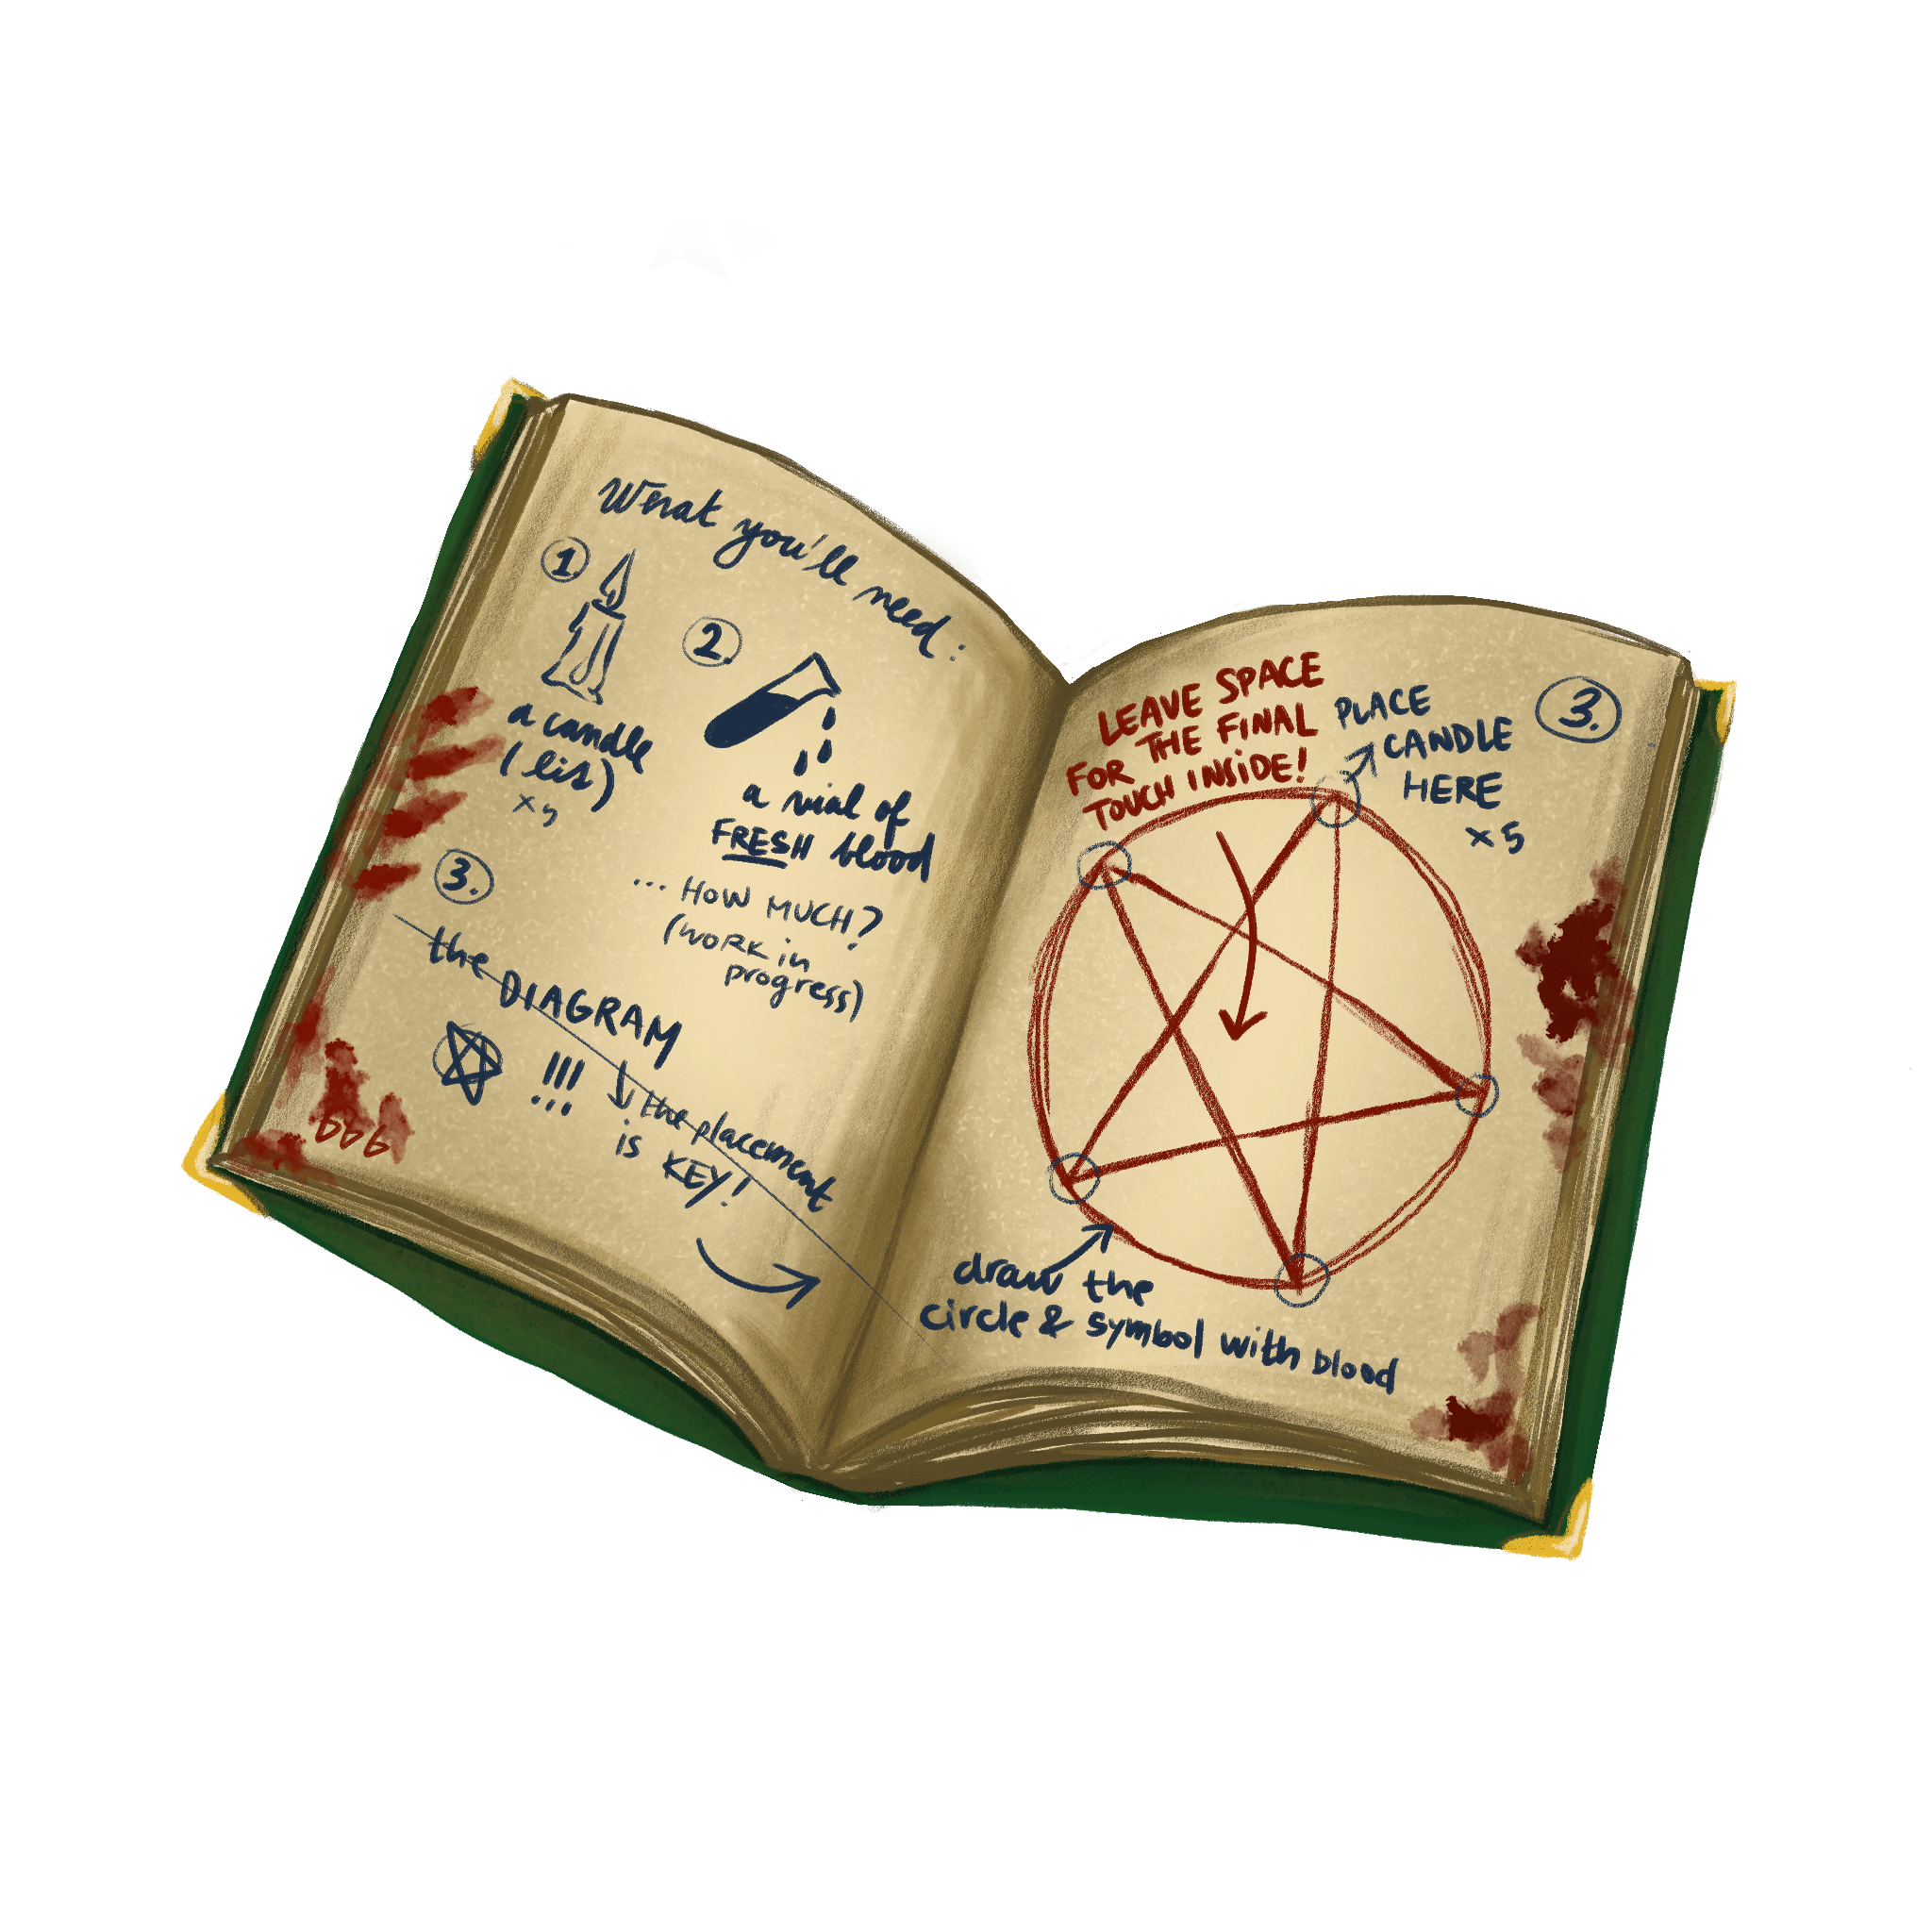 What you'll need:
1
a candle
(lit)
x5
2
a vial of
FRESH blood
... HOW MUCH?
(WORK in
progress)
3.
the DIAGRAM
!!!
the placement
is KEY!
666
LEAVE SPACE
THE FINAL
FOR
TOUCH INSIDE!
PLACE
CANDLE
HERE
x5
3.
draw the
circle & symbol with blood